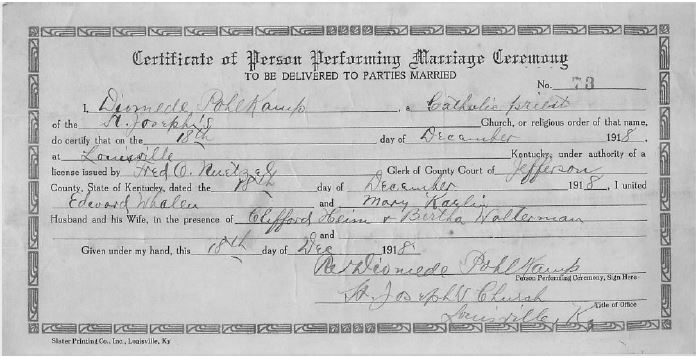 Certificate of Person Performing Marriage Ceremony
TO BE DELIVERED TO PARTIES MARRIED
No. 73
I, Diomede Pohlkamp, a Catholic priest
of the St. Joseph's Church, or religious order of that name,
do certify that on the 18th day of December 1918,
at Louisville Kentucky, under authority of a
license issued by Fred O. Nuetzel Clerk of County Court of Jefferson
County, State of Kentucky, dated the 18th day of December 1918, I united
Edward Whalen and Mary
Husband and his Wife, in the presence of Clifford Heim & Bertha Wolterman
and
Given under my hand, this 18th day of Dec 1918
Rev Diomede Pohlkamp
Person Performing Ceremony, Sign Here
St. Joseph's Church
Title of Office
Louisville, Ky
Slater Printing Co., Inc., Louisville, Ky